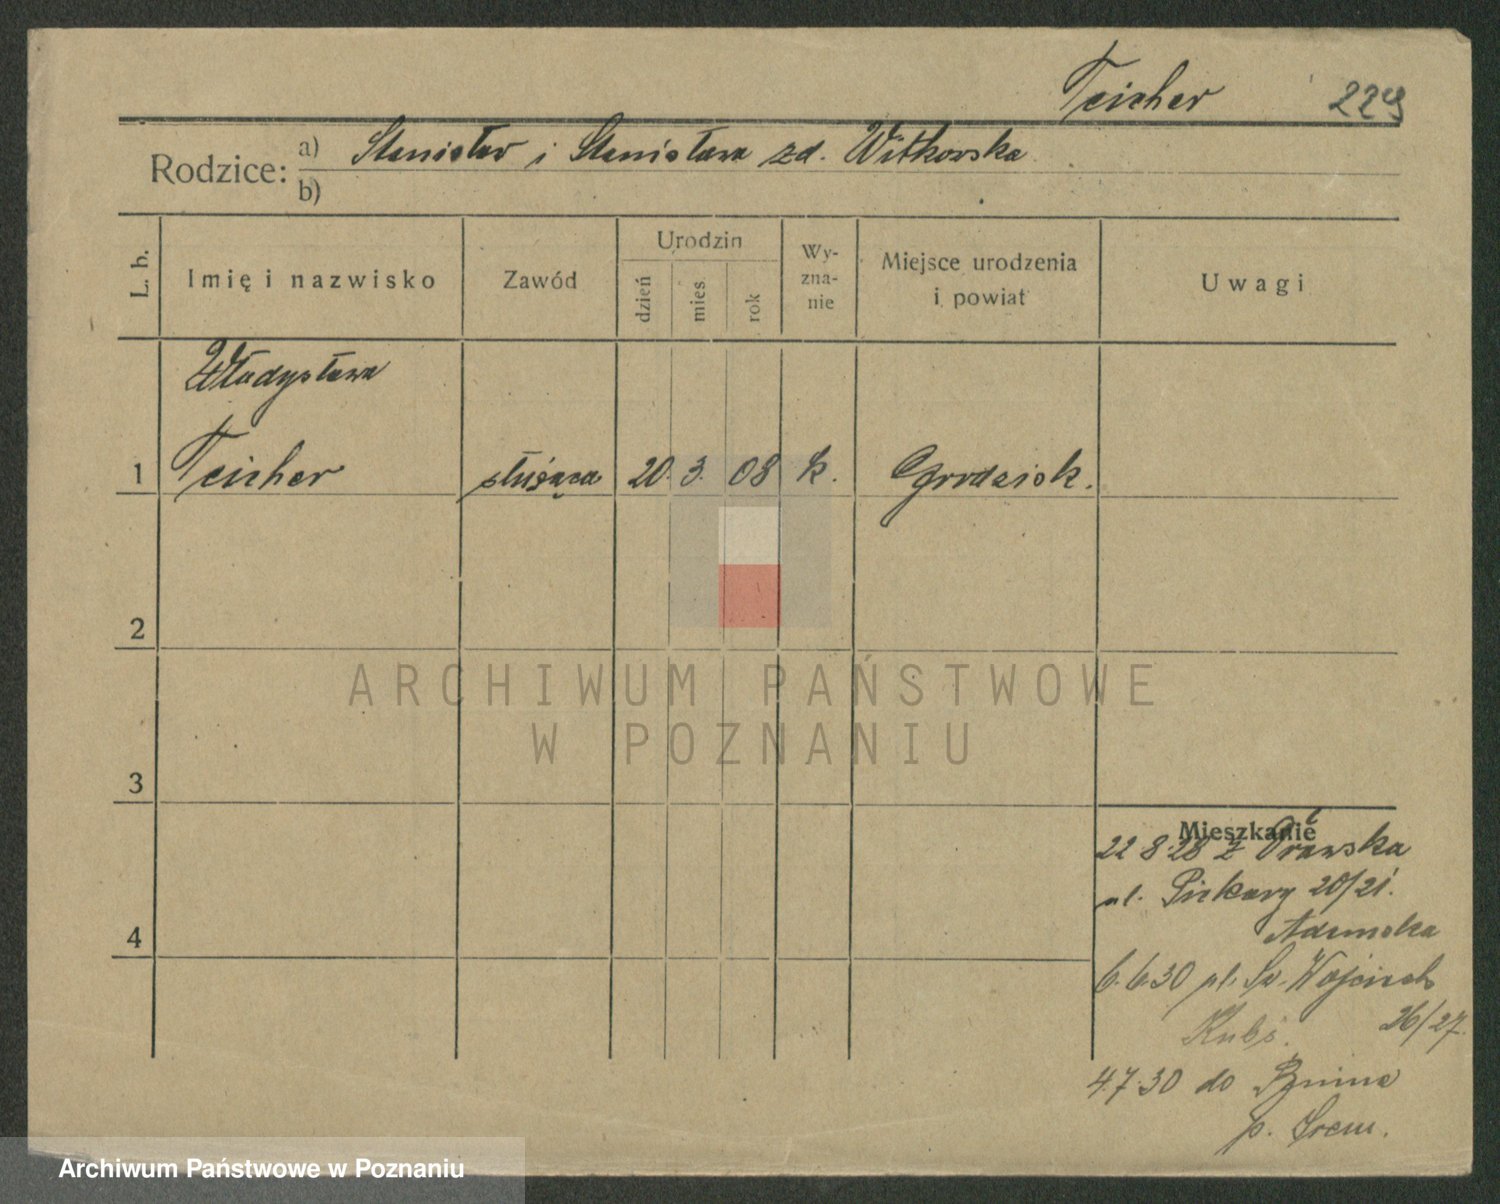 Teicher 229
Rodzice: a) Stanisław i Stanisława zd. Witkowska
b)
L. b. Imię i nazwisko Zawód Urodzin dzień mies. rok Wy-zna-nie Miejsce urodzenia i powiat Uwagi
Władysława
1 Teicher służąca 20. 3. 08 k. Grodzisk.
2
ARCHIWUM PAŃSTWOWE
W POZNANIU
3
Mieszkanie
22 8.28 z
ul. Piekary 20/21.
4
Adamska
6.6.30 pl. Św. Wojciech
26/27
4.7.30 do Bnina
p. Śrem.
Archiwum Państwowe w Poznaniu